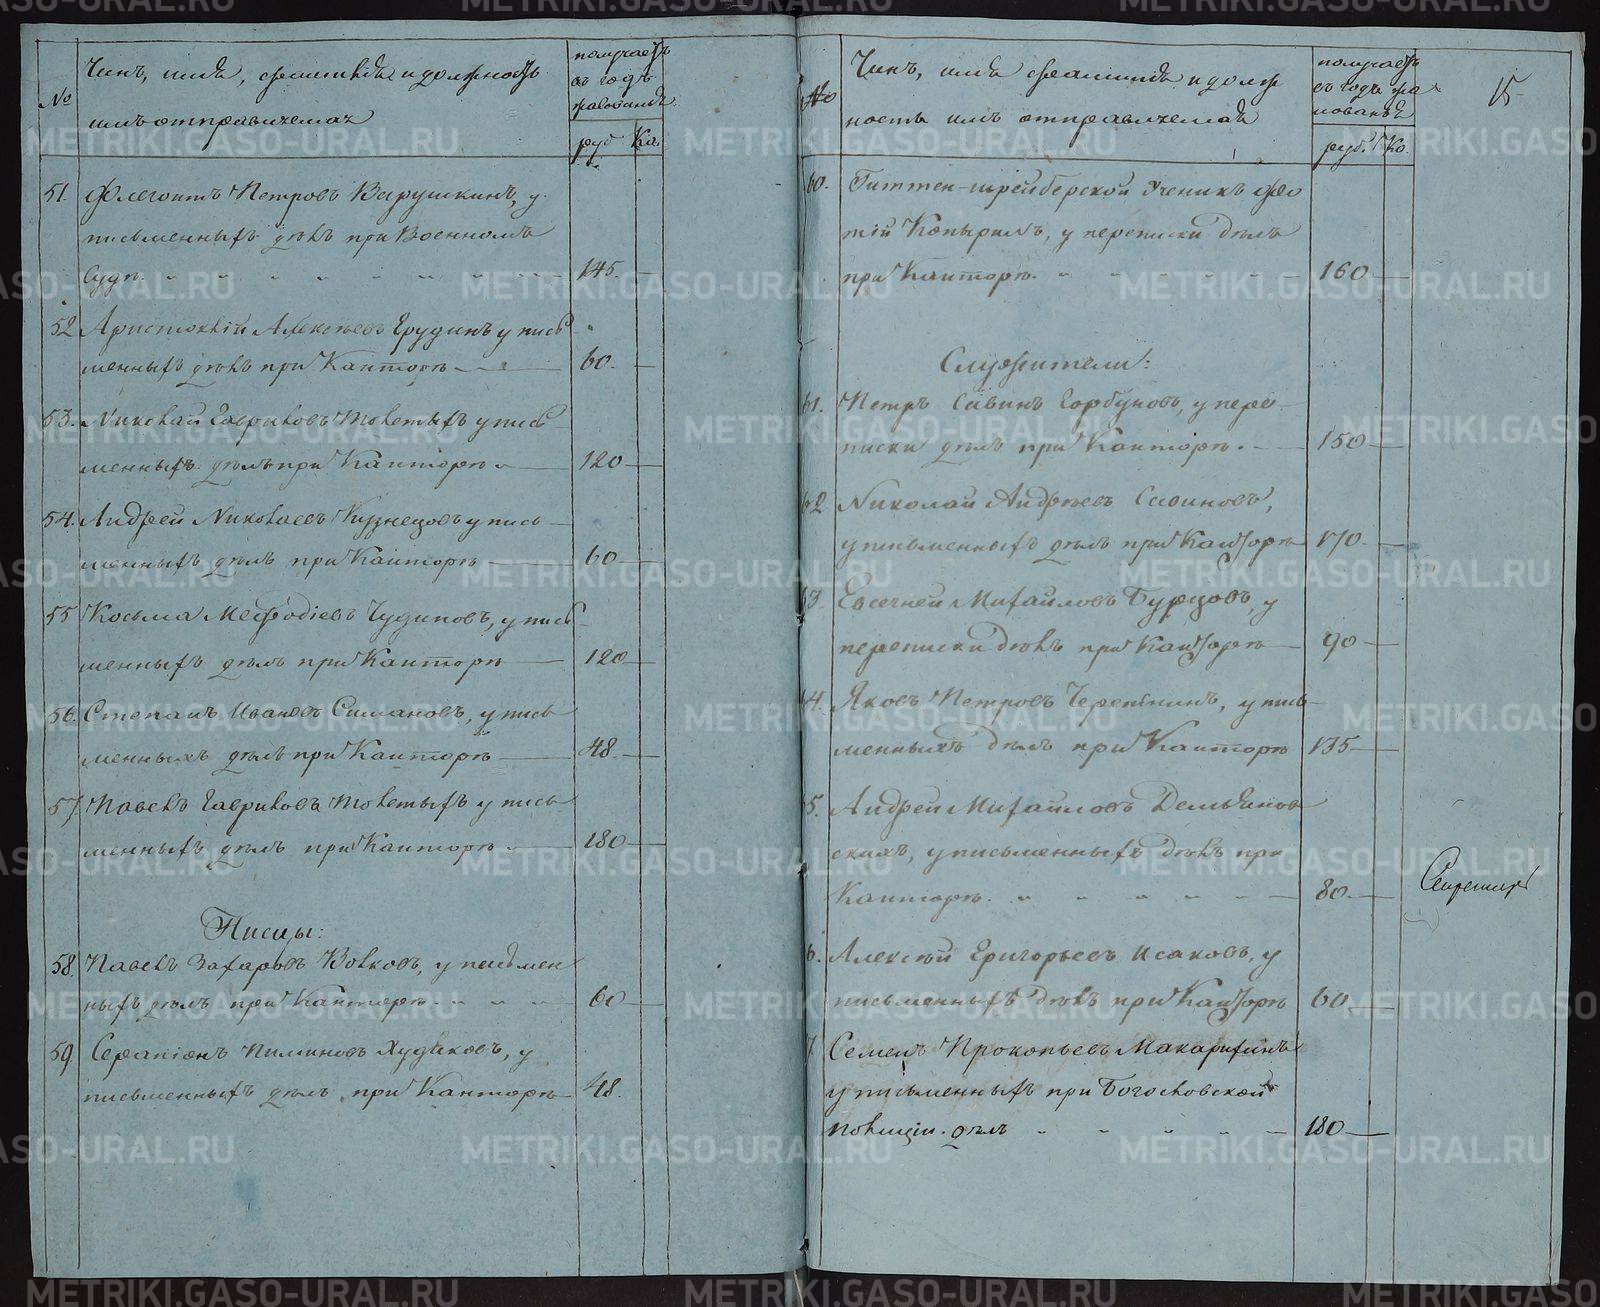 №
Чинъ, имя, фамилія и должность
имъ отправляемая
получаетъ
въ годъ
жалованья
руб
Ко.
51.
Флегонтъ Петровъ Варушкинъ, у
письменныхъ дѣлъ при Военномъ
Судѣ.
145.
52
Аристоклій Алексѣевъ Грудинъ у пись
менныхъ дѣлъ при Канторѣ
60.
53.
Николай Гавриловъ Толстыхъ у пись
менныхъ дѣлъ при Канторѣ
120
54.
Андрей Николаевъ Кузнецовъ у пись
менныхъ дѣлъ при Канторѣ
60
55
Косьма Мефодіевъ Чудиновъ, у пись
менныхъ дѣлъ при Канторѣ
120
56.
Степанъ Ивановъ Симановъ, у пись
менныхъ дѣлъ при Канторѣ
48.
57
Павелъ Гавриловъ Толстыхъ у пись
менныхъ дѣлъ при Канторѣ
180
Писцы:
58
Павелъ Захаровъ Волковъ, у письмен
ныхъ дѣлъ при Канторѣ
60
59
Серапіонъ Пиминовъ Худяковъ, у
письменныхъ дѣлъ при Канторѣ
48.
№
Чинъ, имя фамилія и долж
ность имъ отправляемая
получаетъ
въ годъ жа
лованья
руб.
Ко.
15
60.
Гиттен-шрейберской Ученикъ Фо
тій Копыринъ, у переписки дѣлъ
при Канторѣ.
160
Служители:
61.
Петръ Савинъ Горбуновъ, у пере
писки дѣлъ при Канторѣ.
150
62
Николай Андреевъ Савиновъ,
у письменныхъ дѣлъ при Канторѣ
170.
3.
Евсегней Михайловъ Бурцовъ, у
переписки дѣлъ при Канторѣ
90
4.
Яковъ Петровъ Черепнинъ, у пись
менныхъ дѣлъ при Канторѣ
135
5.
Андрей Михайловъ Демьянов
скихъ, у письменныхъ дѣлъ при
Канторѣ.
80.
Секретарь
6.
Алексѣй Григорьевъ Исаковъ, у
письменныхъ дѣлъ при Канторѣ
60
7.
Семенъ Прокопьевъ Макарихинъ
у письменныхъ при Богословской
полиціи дѣлъ
180
METRIKI.GASO-URAL.RU